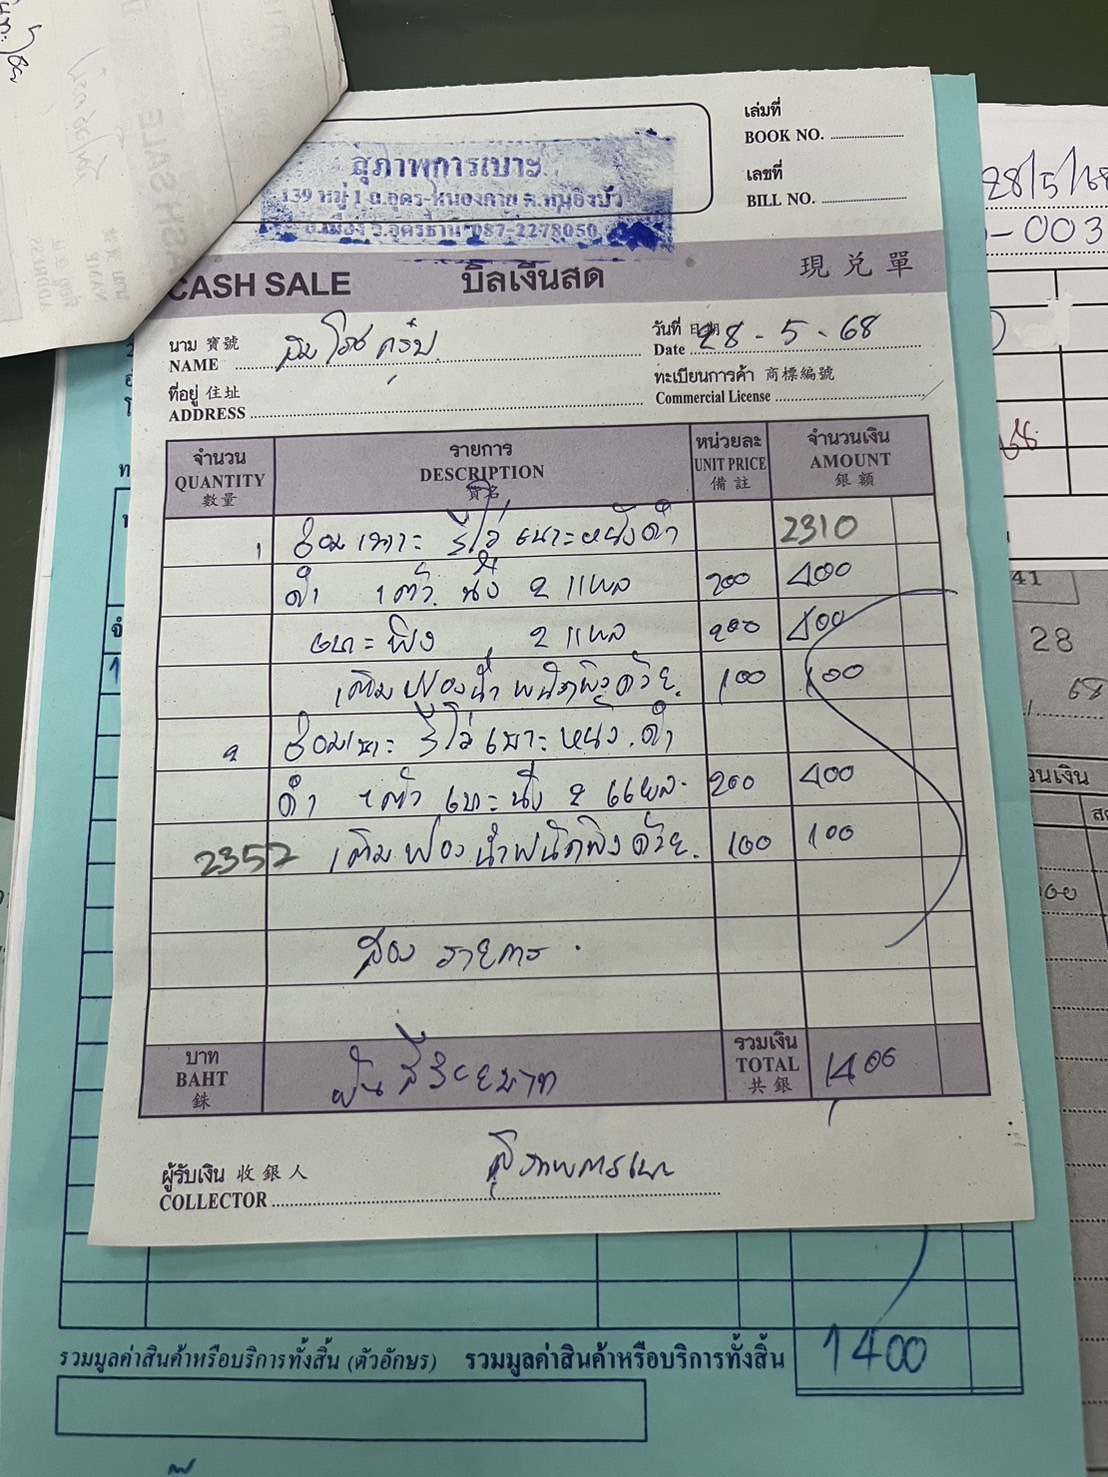 สุภาพการเบาะ
139 หมู่ 1 ถ.อุดร-หนองคาย ต.หมูม่น
อ.เมือง จ.อุดรธานี 087-2278050
เล่มที่
BOOK NO.
เลขที่
BILL NO.
CASH SALE บิลเงินสด 現兌單
นาม 寶號
NAME
วันที่ 日期
Date 28-5-68
ที่อยู่ 住址
ADDRESS
ทะเบียนการค้า 商標編號
Commercial License
จำนวน รายการ หน่วยละ จำนวนเงิน
QUANTITY DESCRIPTION UNIT PRICE AMOUNT
數量 貨名 備註 銀額
1 ซ่อมเบาะ รีโว่ เบาะหนังดำ 2310
ดำ 1 ตัว นั่ง 2 แผล 200 400
เบาะพิง 2 แผล 200 400
เติมฟองน้ำพนักพิงด้วย 100 100
2 ซ่อมเบาะ รีโว่ เบาะหนัง ดำ
ดำ 1 ตัว เบาะนั่ง 2 แผล 200 400
2352 เติมฟองน้ำพนักพิงด้วย 100 100
สอง รายการ
บาท รวมเงิน
BAHT พันสี่ร้อยบาท TOTAL 1400
銖 共銀
ผู้รับเงิน 收銀人
COLLECTOR สุภาพการเบาะ
รวมมูลค่าสินค้าหรือบริการทั้งสิ้น (ตัวอักษร) รวมมูลค่าสินค้าหรือบริการทั้งสิ้น 1400
28/5/68
-003
41
28
68
วนเงิน